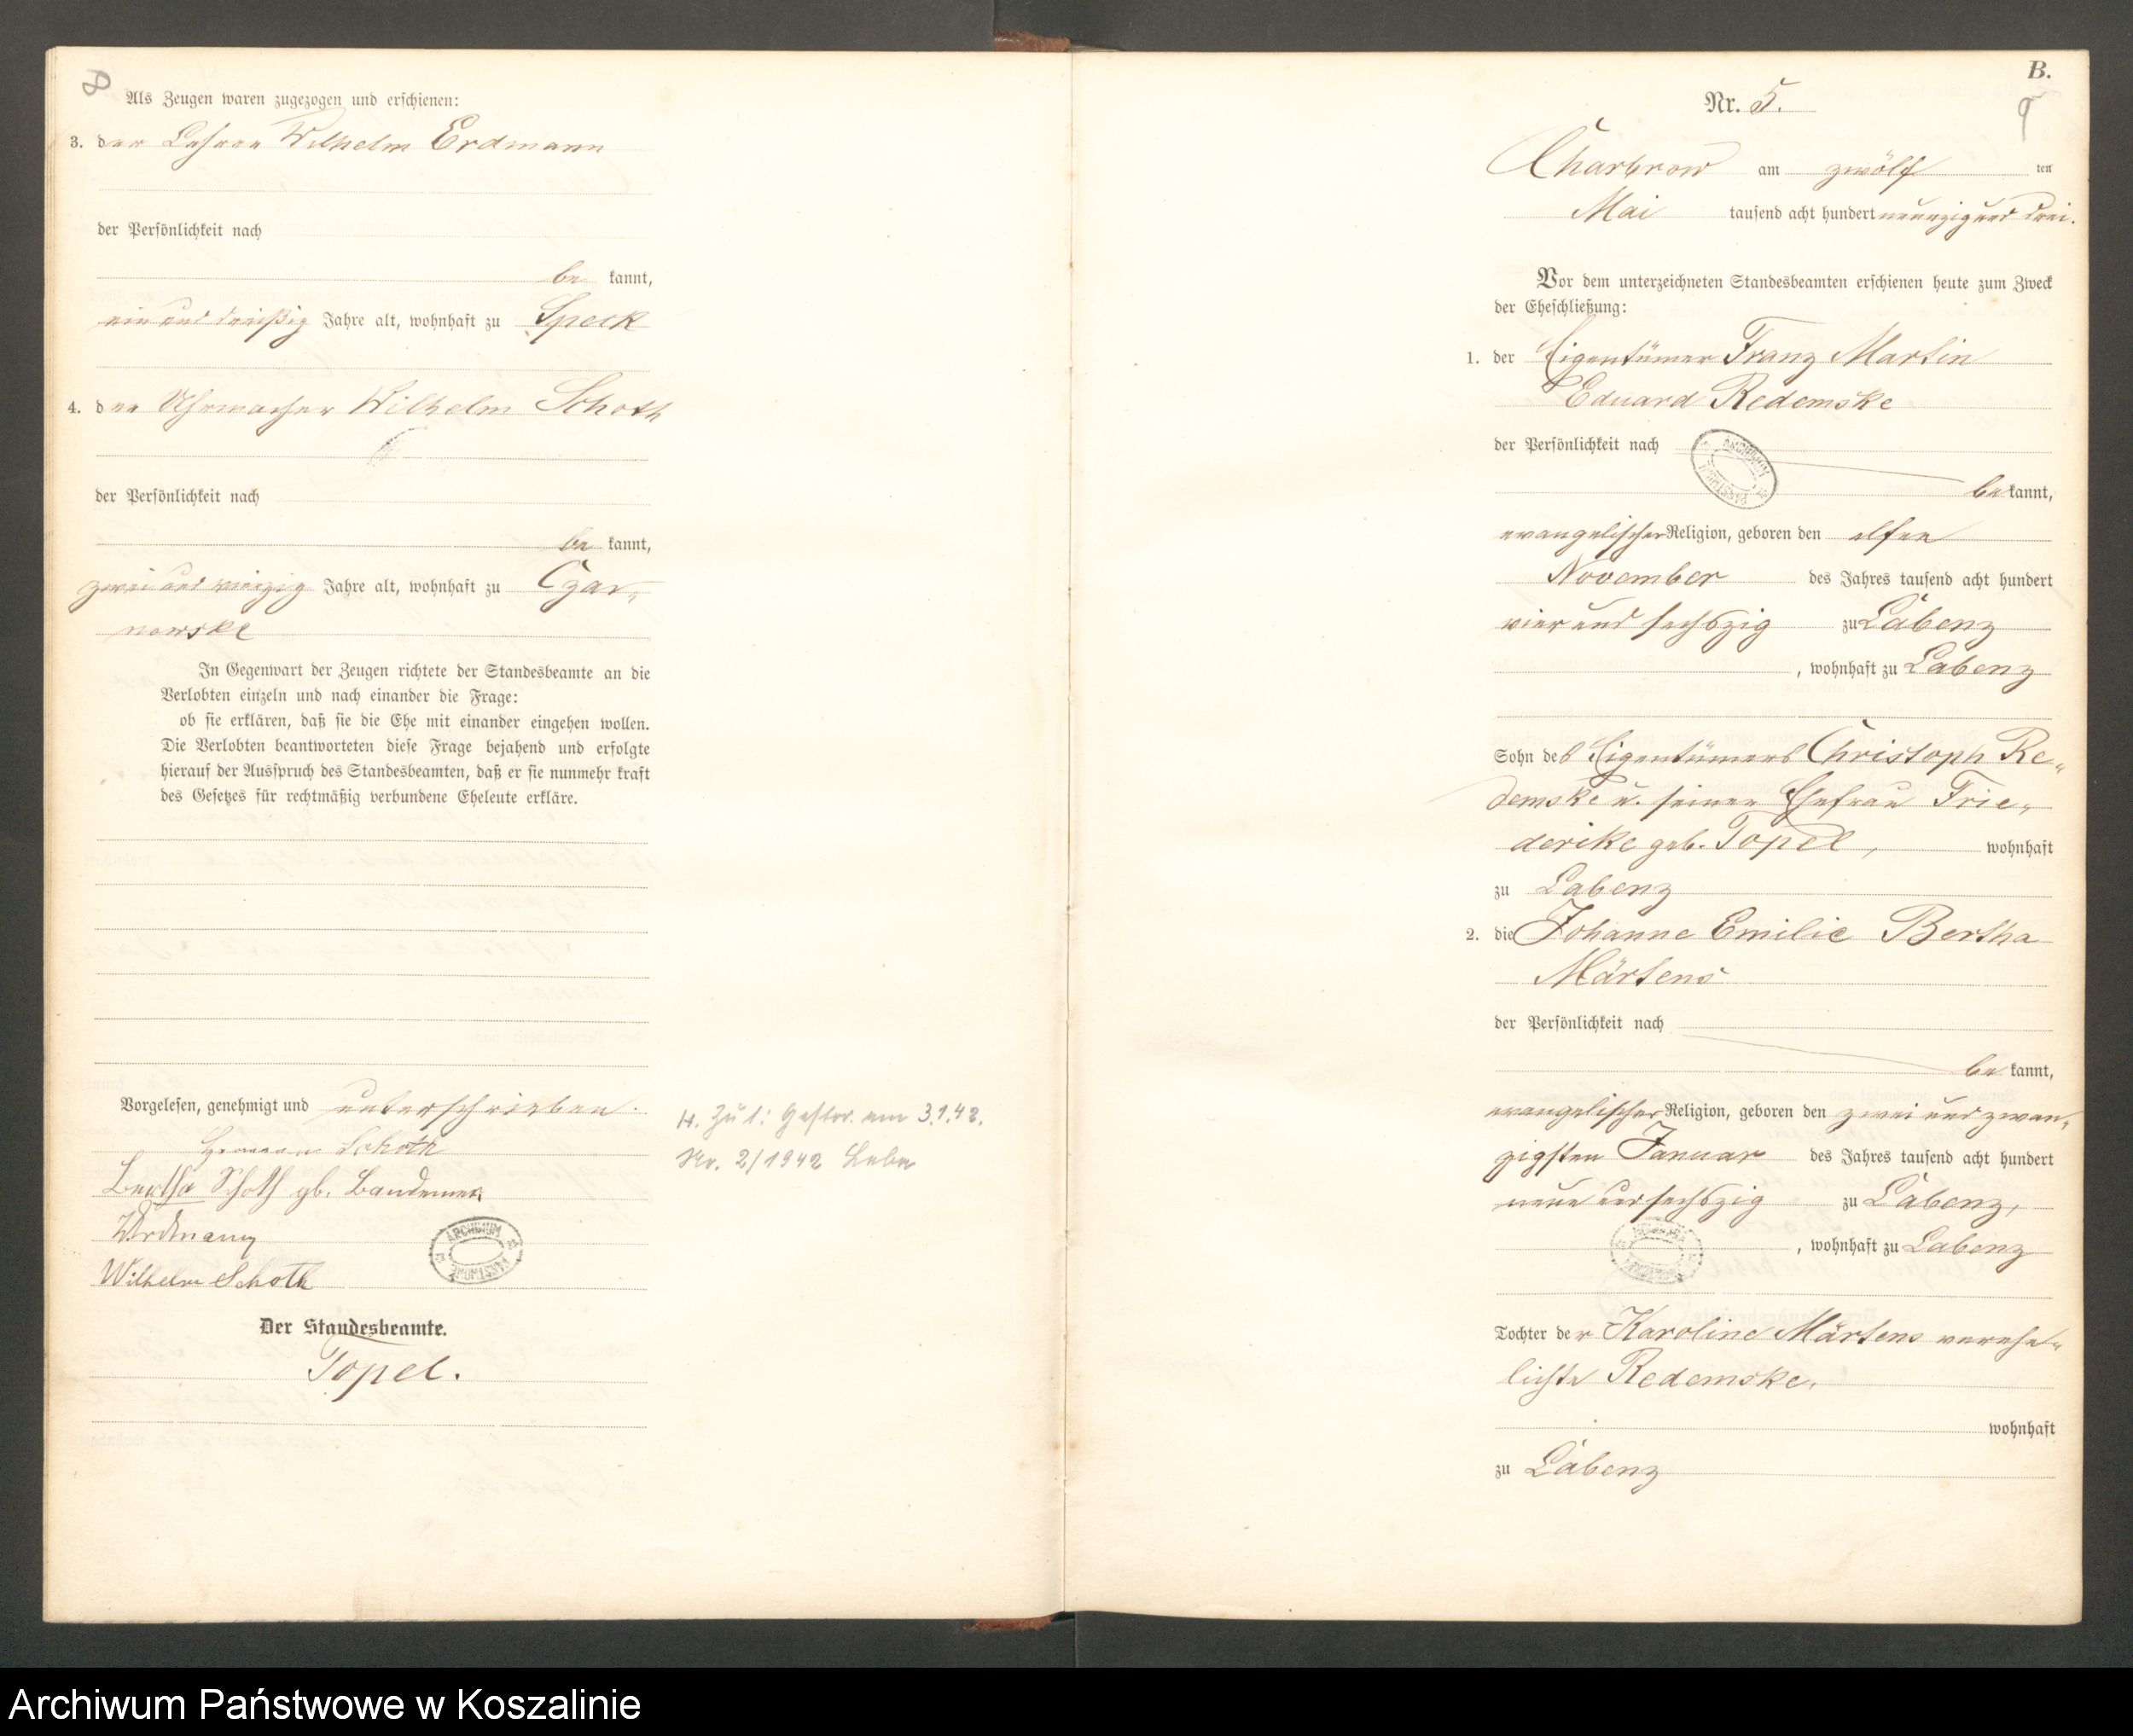 8
Als Zeugen waren zugezogen und erschienen:
3. der Lehrer Wilhelm Erdmann
der Persönlichkeit nach
be kannt,
ein und dreißig Jahre alt, wohnhaft zu Speck
4. der Uhrmacher Wilhelm Schoth
der Persönlichkeit nach
be kannt,
zwei und vierzig Jahre alt, wohnhaft zu Czar-
nowske
In Gegenwart der Zeugen richtete der Standesbeamte an die
Verlobten einzeln und nach einander die Frage:
ob sie erklären, daß sie die Ehe mit einander eingehen wollen.
Die Verlobten beantworteten diese Frage bejahend und erfolgte
hierauf der Ausspruch des Standesbeamten, daß er sie nunmehr kraft
des Gesetzes für rechtmäßig verbundene Eheleute erkläre.
Vorgelesen, genehmigt und unterschrieben.
Hermann Schoth
Bertha Schoth gb. Bandemer
WErdmann
Wilhelm Schoth
ARCHIWUM PAŃSTWOWE
Der Standesbeamte.
Topel.
H. Zu 1: Gestor. am 3.1.42.
Nr. 2/1942 Leba
B.
9
Nr. 5.
Charbrow am zwölf ten
Mai tausend acht hundert neunzig und drei.
Vor dem unterzeichneten Standesbeamten erschienen heute zum Zweck
der Eheschließung:
1. der Eigentümer Franz Martin
Eduard Redemske
der Persönlichkeit nach
ARCHIWUM PAŃSTWOWE
be kannt,
evangelischer Religion, geboren den elften
November des Jahres tausend acht hundert
vier und sechszig zu Labenz
, wohnhaft zu Labenz
Sohn des Eigentümers Christoph Re-
demske u. seiner Ehefrau Frie-
derike geb. Topel, wohnhaft
zu Labenz
2. die Johanne Emilie Bertha
Märtens
der Persönlichkeit nach
be kannt,
evangelischer Religion, geboren den zwei und zwan-
zigsten Januar des Jahres tausend acht hundert
neun und sechszig zu Labenz,
, wohnhaft zu Labenz
Tochter der Karoline Märtens verehe-
lichte Redemske,
wohnhaft
zu Labenz
Archiwum Państwowe w Koszalinie